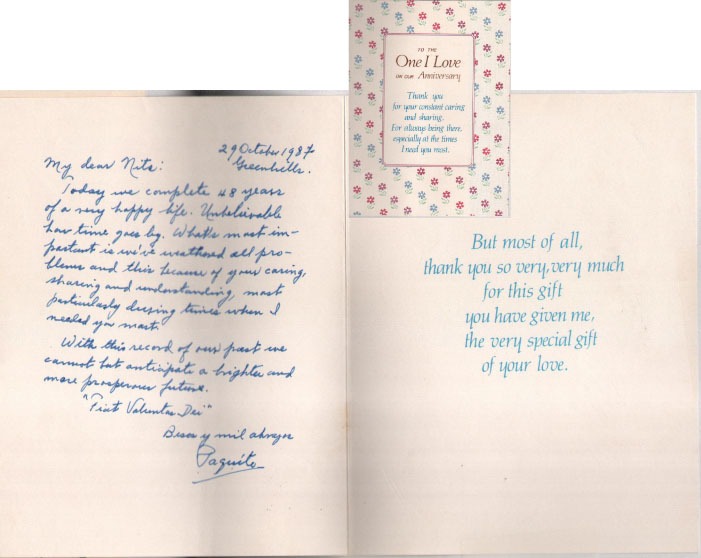 TO THE
One I Love
ON OUR Anniversary
Thank you
for your constant caring
and sharing.
For always being there,
especially at the times
I need you most.
29 October 1987
Greenhills.
My dear Nita:
Today we complete 48 years
of a very happy life. Unbelievable
how time goes by. What's most im-
portant is we've weathered all pro-
blems and this because of your caring,
sharing and understanding, most
particularly during times when I
needed you most.
With this record of our past we
cannot but anticipate a brighter and
more prosperous future.
"Fiat Voluntas Dei"
Besos y mil abrazos
Paquito
But most of all,
thank you so very, very much
for this gift
you have given me,
the very special gift
of your love.